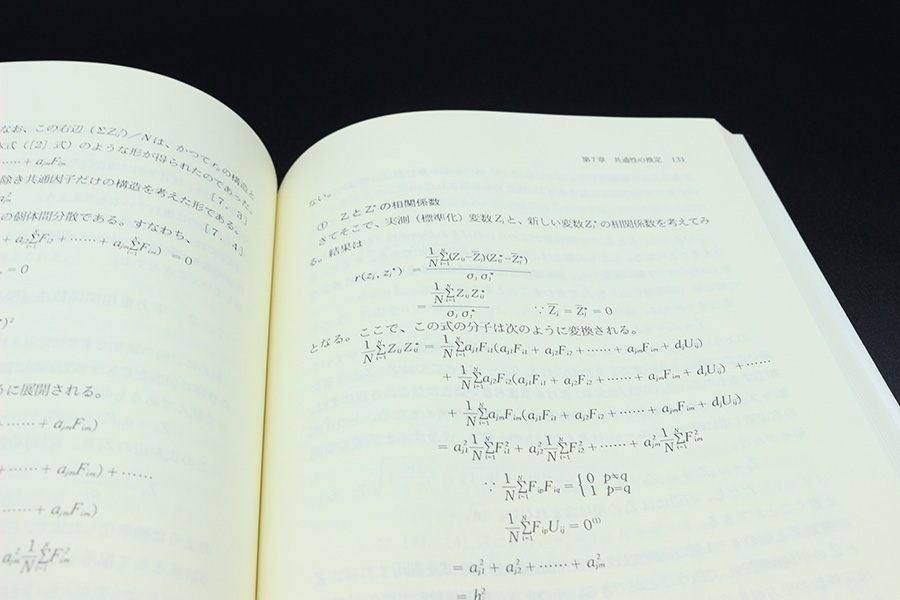 なお、この右辺（ΣZ²ᵢⱼ）／Nは、かつてr₀の構造と
式（[2] 式）のような形が得られたのであった。
……+ aⱼₘFᵢₘ [7. 3]
除き共通因子だけの構造を考えた形である。
[7. 4]
の個体間分散である。すなわち、
+ aⱼ₂ΣFᵢ₂ + …… + aⱼₘΣFᵢₘ) = 0
= 0
)²
に展開される。
…… + aⱼₘFᵢₘ)
+ …… + aⱼₘFᵢₘ) + ……
…… + aⱼₘFᵢₘ)
aⱼₘ² 1/N Σᵢ₌₁ᴺ Fᵢₘ²
第7章 共通性の推定 131
ない。
① ZⱼとZⱼ*の相関係数
さてそこで、実測（標準化）変数Zⱼと、新しい変数Zⱼ*の相関係数を考えてみ
る。結果は
r(zⱼ, zⱼ*) = 1/N Σᵢ₌₁ᴺ (Zᵢⱼ−Z̄ⱼ)(Zᵢⱼ*−Z̄ⱼ*) / σⱼ σⱼ*
= 1/N Σᵢ₌₁ᴺ Zᵢⱼ Zᵢⱼ* / σⱼ σⱼ* ∵ Z̄ⱼ = Z̄ⱼ* = 0
となる。ここで、この式の分子は次のように変換される。
1/N Σᵢ₌₁ᴺ Zᵢⱼ Zᵢⱼ* = 1/N Σᵢ₌₁ᴺ aⱼ₁Fᵢ₁(aⱼ₁Fᵢ₁ + aⱼ₂Fᵢ₂ + …… + aⱼₘFᵢₘ + dⱼUᵢⱼ)
+ 1/N Σᵢ₌₁ᴺ aⱼ₂Fᵢ₂(aⱼ₁Fᵢ₁ + aⱼ₂Fᵢ₂ + …… + aⱼₘFᵢₘ + dⱼUᵢⱼ) + ……
+ 1/N Σᵢ₌₁ᴺ aⱼₘFᵢₘ(aⱼ₁Fᵢ₁ + aⱼ₂Fᵢ₂ + …… + aⱼₘFᵢₘ + dⱼUᵢⱼ)
= aⱼ₁² 1/N Σᵢ₌₁ᴺ Fᵢ₁² + aⱼ₂² 1/N Σᵢ₌₁ᴺ Fᵢ₂² + …… + aⱼₘ² 1/N Σᵢ₌₁ᴺ Fᵢₘ²
∵ 1/N Σᵢ₌₁ᴺ FᵢₚFᵢq = { 0 p≠q
1 p=q
1/N Σᵢ₌₁ᴺ FᵢₚUᵢⱼ = 0⁽¹⁾
= aⱼ₁² + aⱼ₂² + …… + aⱼₘ²
= hⱼ²